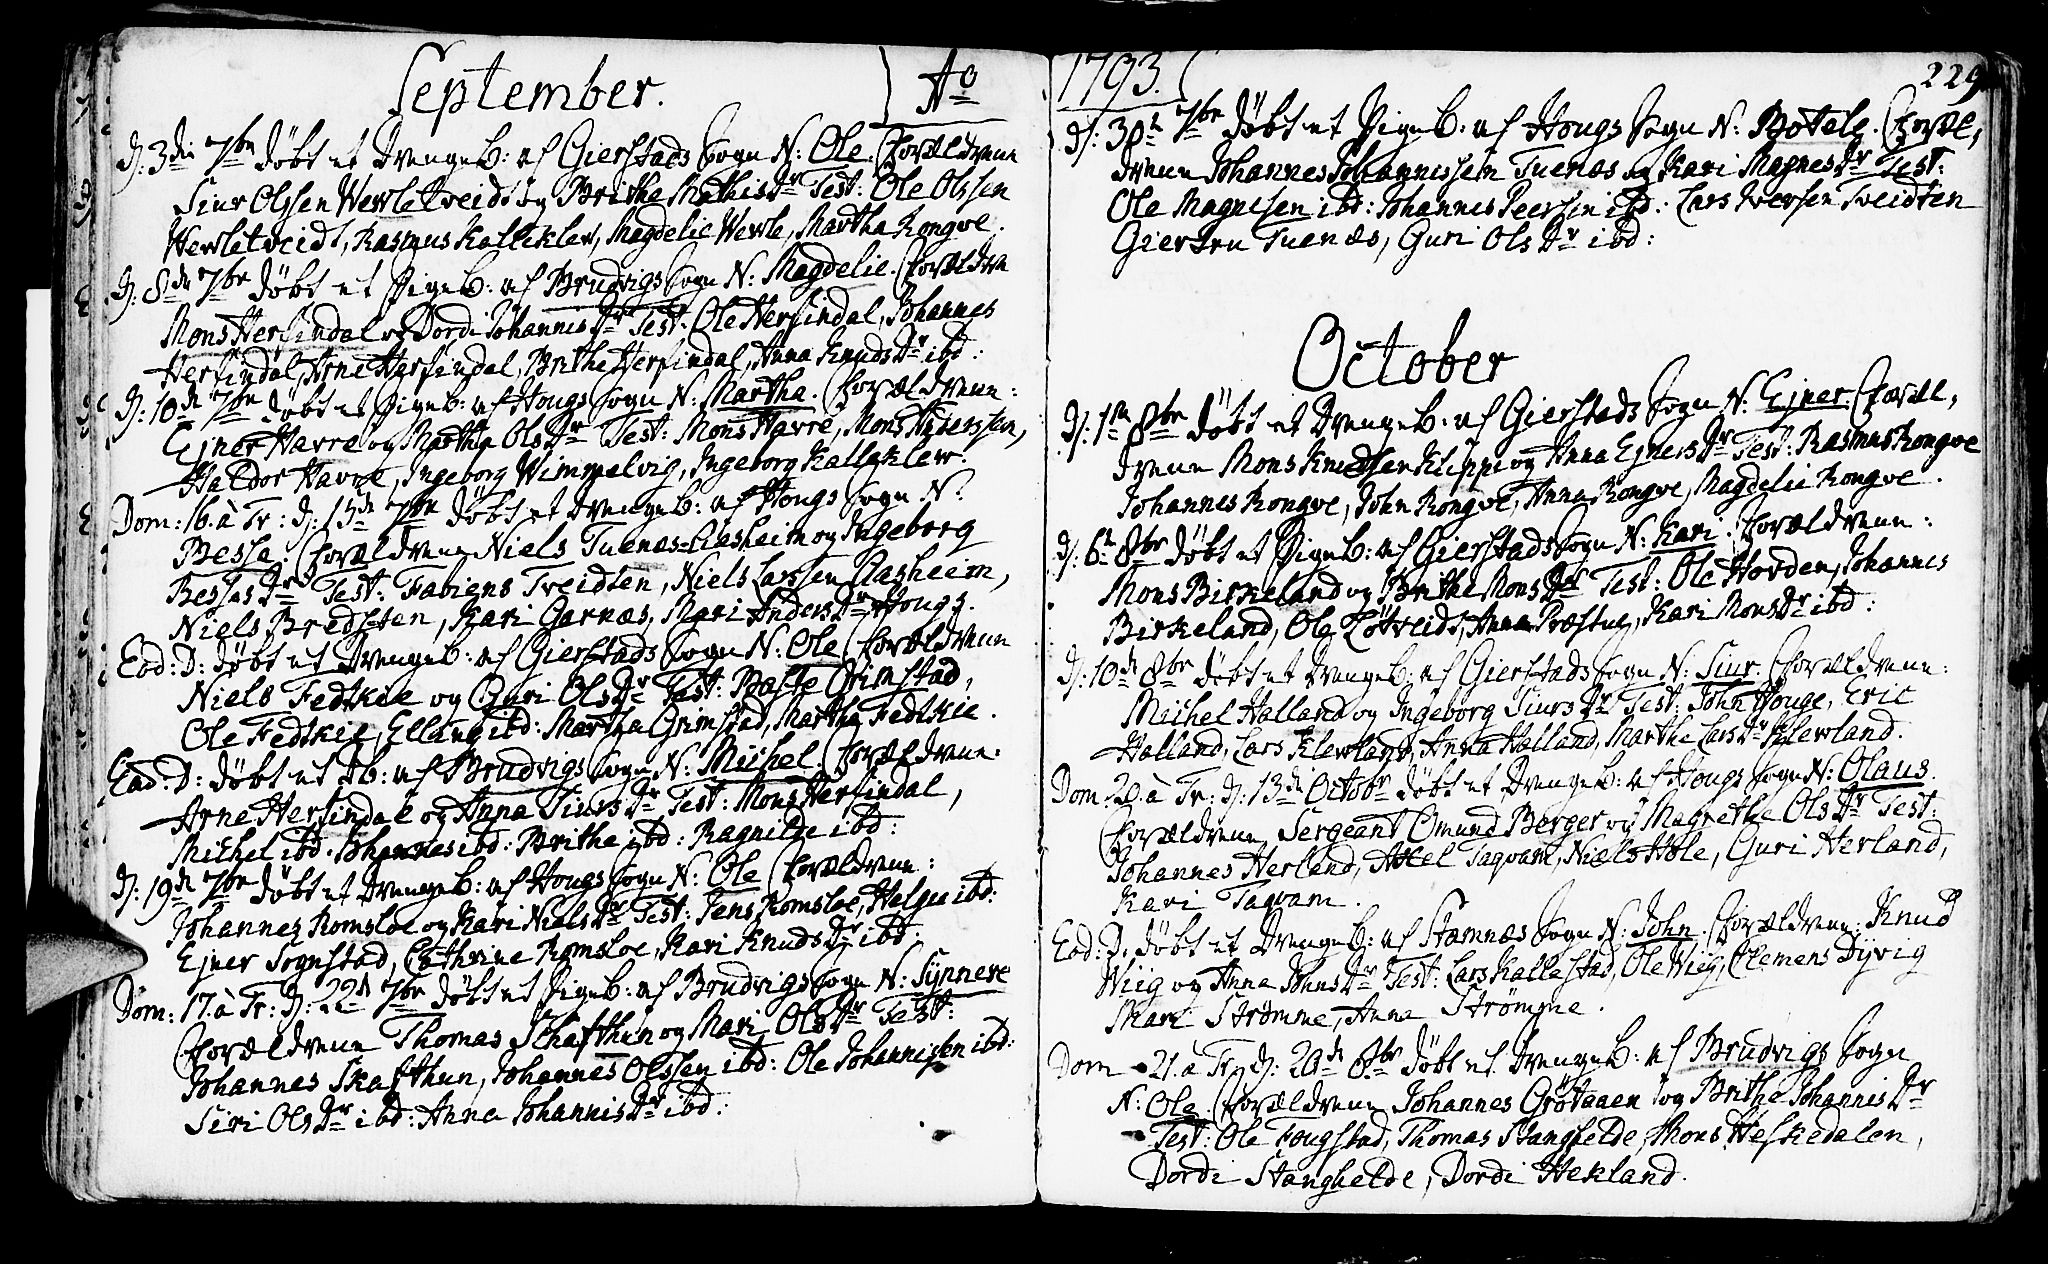 September.
Ao
d: 3die 7br døbt et Drengeb: af Gierstads Sogn N: Ole. Forældrene
Siur Olssen Wewletveidt og Brithe Mathisdr Test: Ole Olssen
Wewletveidt, Rasmus Kalleklev, Magdelie Wewle, Martha Rongve.
d: 8de 7br døbt et Pigeb: af Brudvigs Sogn N: Magdelie. Forældre
Mons Herfindal og Dordi Johannisdr Test: Ole Herfindal, Johannes
Herfindal, Arne Herfindal, Brithe Herfindal, Anna Knudsdr ibd:
d: 10de 7br døbt et Pigeb: af Hougs Sogn N: Martha. Forældrene:
Ejner Havre og Martha Olsdr Test: Mons Havre, Mons
Haldor Havre, Ingeborg Wimmelvig, Ingeborg Kalleklew.
Dom: 16. à Tr: d: 15de 7br døbt et Drengeb: af Hougs Sogn N:
Besse. Forældrene Niels Tuenæs-Aasheim og Ingeborg
Besses dr Test: Fabiens Tveidten, Niels Larssen Aasheim,
Niels Bredsteen, Kari Garnæs, Mari Andersdr Hougs.
Eod: D: døbt et Drengeb: af Gierstads Sogn N: Ole Forældrene
Niels Fedtkie og Guri Olsdr Test: Baste Grimstad,
Ole Fedtkie, Elling ibd: Martha Grimstad, Martha Fedtkie.
Eod: D: døbt et Db: af Brudvigs Sogn N: Michel. Forældrene:
Arne Herfindal og Anna Siursdr Test: Mons Herfindal,
Michel ibd. Johannes ibd: Brithe ibd: Ragnilde ibd:
d: 19de 7br døbt et Drengeb: af Hougs Sogn N: Ole Forældrene:
Johannes Romsloe og Kari Nielsdr Test: Jens Romsloe, Helge ibd:
Ejner Sognstad, Cathrine Romsloe, Kari Knudsdr ibd.
Dom: 17. à Tr: d: 22de 7br døbt et Pigeb: af Brudvigs Sogn N: Synneve
Forældrene Thomas Schafthun og Mari Olsdr Test:
Johannes Skafthun, Johannes Olssen ibd: Ole Johannissen ibd:
Siri Olsdr ibd: Anna Johannisdr ibd:
1793.
229
d: 30te 7br døbt et Pigeb: af Hougs Sogn N: Botele. Foræl,
drene Johannes Johannissen Tuenæs og Kari Magnesdr Test:
Ole Magnesen ibd: Johannes Peersen ibd: Lars Iversen Tveidten
Giertru Tuenæs, Guri Olsdr ibd:
October
d: 1ste 8br døbt et Drengeb: af Gierstads Sogn N: Ejner Foræl,
drene Mons Knudsen Klippe og Anna Ejnersdr Test: Rasmus Rongve
Johannes Rongve, John Rongve, Anna Rongve, Magdelie Rongve.
d: 6te 8br døbt et Pigeb: af Gierstads Sogn N: Kari. Forældrene:
Mons Birkeland og Brithe Monsdr Test: Ole Horden, Johannes
Birkeland, Ole Løtveidt, Anna Præstue, Kari Monsdr ibd:
d: 10de 8br døbt et Drengeb: af Gierstads Sogn N: Siur. Forældrene:
Michel Halland og Ingeborg Siursdr Test: John Houge, Eric
Halland, Lars Klewland, Anna Halland, Marthe Larsdr Klewland.
Dom: 20. à Tr: d: 13de Octobr døbt et Drengeb: af Hougs Sogn N: Olaus.
Forældrene Sergeant Omund Berger og Magrethe Olsdr Test:
Johannes Herland, Axel Taqvam, Niels Hole, Guri Herland,
Kari Taqvam.
Eod: D. døbt et Drengeb: af Stamnæs Sogn N: John. Forældrene: Knud
Wiig og Anna Johnsdr Test: Lars Kallestad, Ole Wiig, Clemens Dyvig
Mari Strømme, Anna Strømme.
Dom 21. à Tr. d: 20de 8br døbt et Drengeb: af Brudvigs Sogn
N: Ole. Forældrene Johannes Grøtaaen og Brithe Johannisdr
Test: Ole Fougstad, Thomas Stanghelde, Mons Heskedalen,
Dordi Stanghelde, Dordi Hekland.